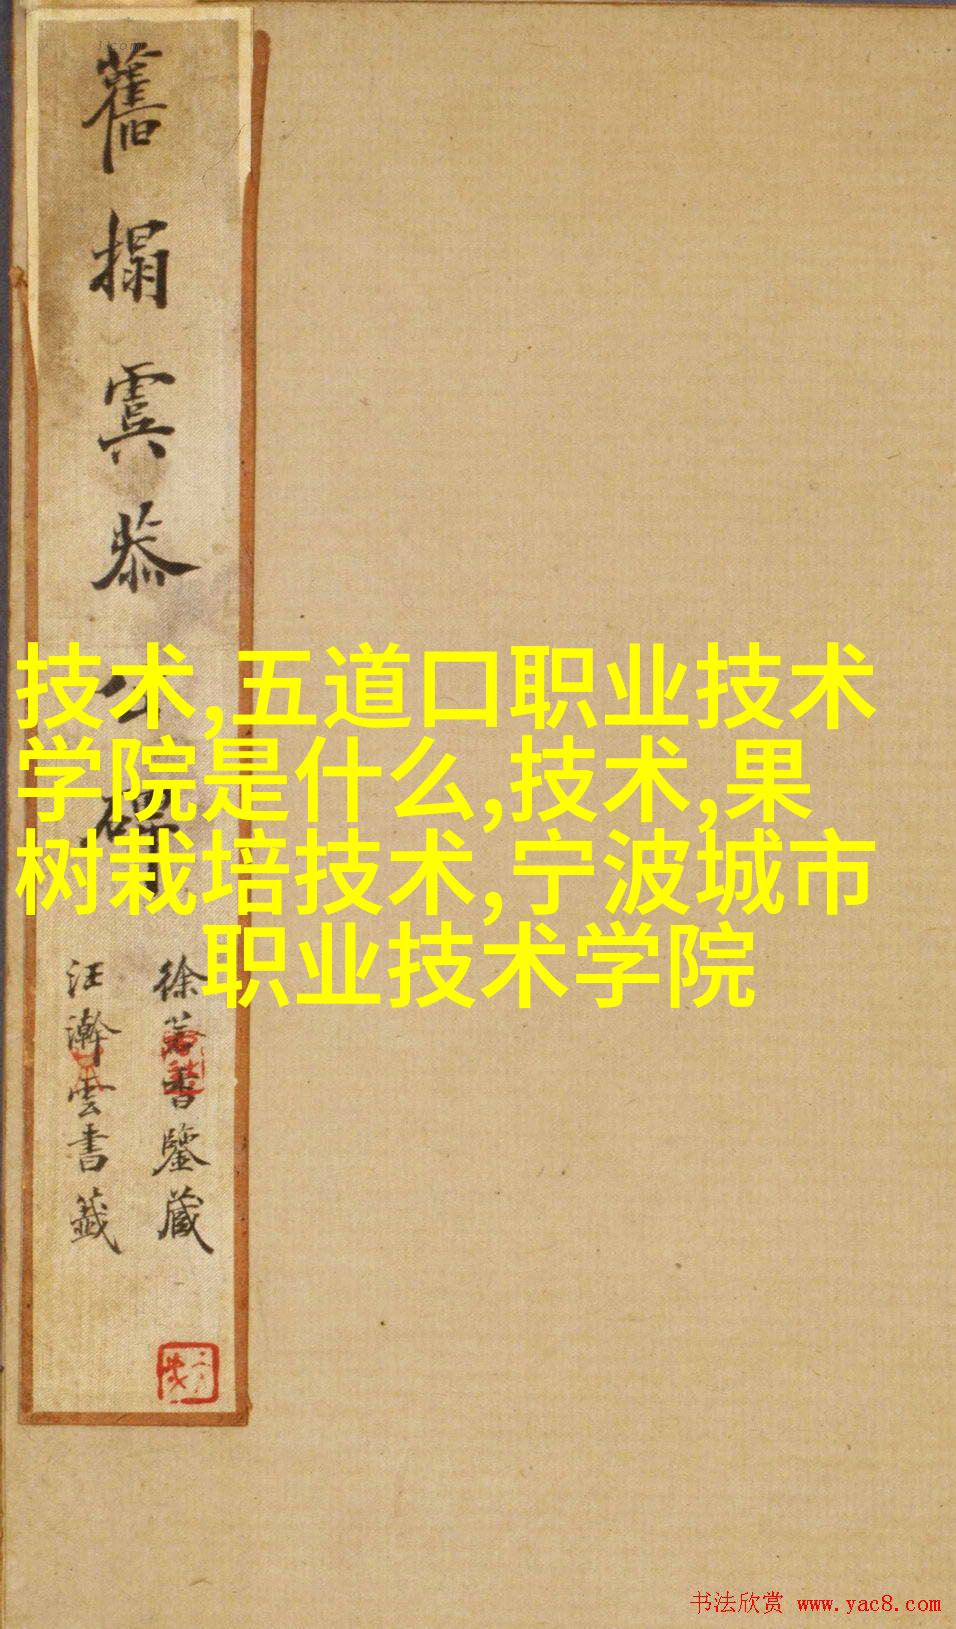 舊搨虞恭公碑
徐若書鑒藏
汪瀚雲書籤
技术,五道口职业技术
学院是什么,技术,果
树栽培技术,宁波城市
职业技术学院
书法欣赏 www.yac8.com